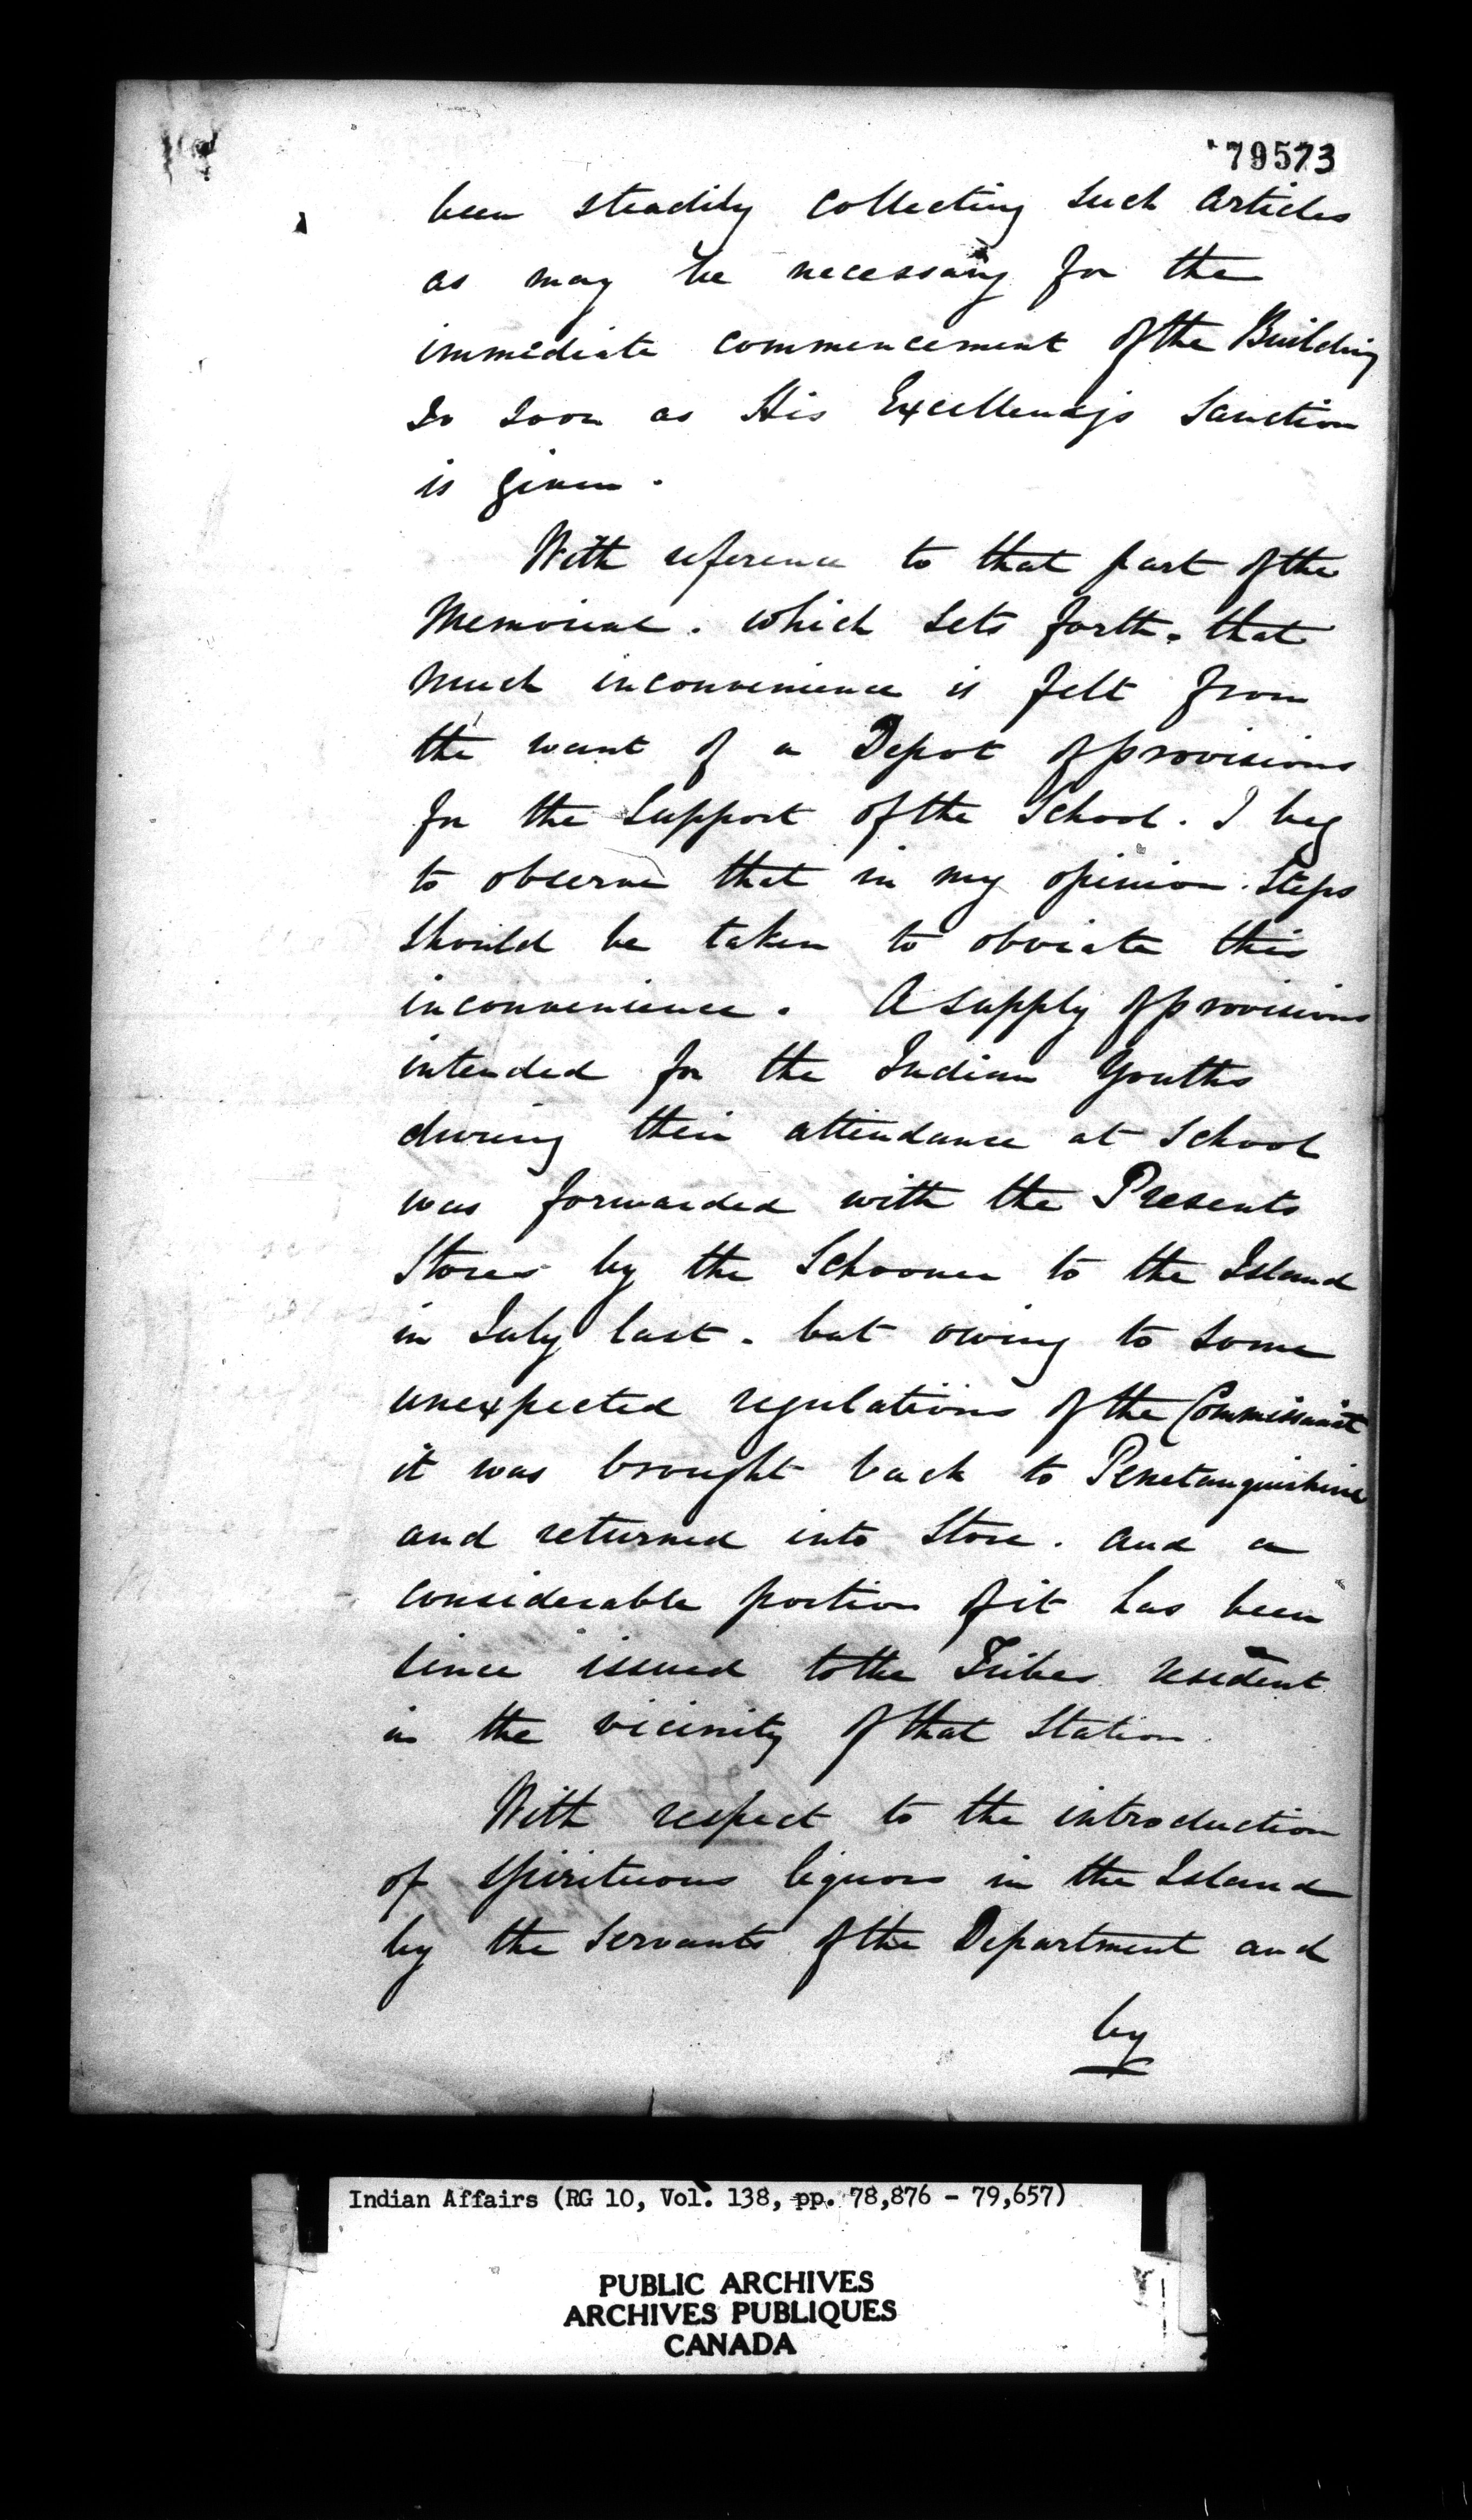 79573
been steadily collecting such articles
as may be necessary for the
immediate commencement of the Building
So soon as His Excellencys Sanction
is given.
With reference to that part of the
Memorial. which sets forth. that
much inconvenience is felt from
the want of a Depot of provisions
for the Support of the School. I beg
to observe that in my opinion. Steps
should be taken to obviate this
inconvenience. A supply of provisions
intended for the Indian Youths
during their attendance at School
was forwarded with the Presents
Stores by the Schooner to the Island
in July last. but owing to some
unexpected regulations of the Commissariat
it was brought back to Penetanguishine
and returned into Store. and a
considerable portion of it has been
since issued to the Tribes resident
in the vicinity of that Station.
With respect to the introduction
of spirituous liquors in the Island
by the Servants of the Department and
by
Indian Affairs (RG 10, Vol. 138, pp. 78,876 - 79,657)
PUBLIC ARCHIVES
ARCHIVES PUBLIQUES
CANADA